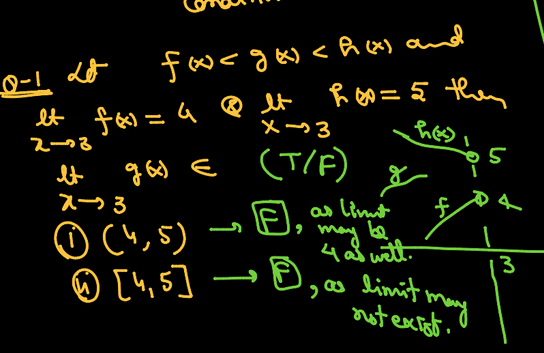 Q-1 Let f(x) < g(x) < h(x) and
lt f(x) = 4 & lt h(x) = 5 then
x→3 x→3
lt g(x) ∈ (T/F)
x→3
(i) (4,5) → F, as limit may be 4 as well.
(ii) [4,5] → F, as limit may not exist.
h(x)
5
g
f
4
3